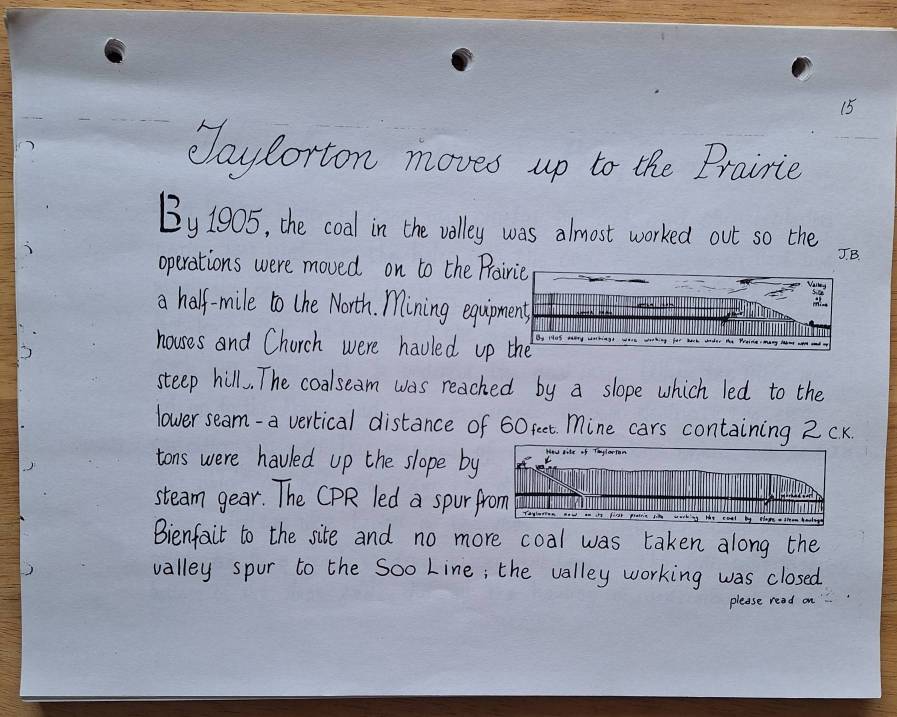 15
Taylorton moves up to the Prairie
By 1905, the coal in the valley was almost worked out so the
J.B.
operations were moved on to the Prairie
a half-mile to the North. Mining equipment,
houses and Church were hauled up the
Valley
Site
of
Mine
By 1905 valley workings were working far back under the Prairie - many seams were used up
steep hill. The coalseam was reached by a slope which led to the
lower seam - a vertical distance of 60 feet. Mine cars containing 2
C.K.
tons were hauled up the slope by
steam gear. The CPR led a spur from
New site of Taylorton
Taylorton now on its first prairie site working the coal by slope & steam haulage
Bienfait to the site and no more coal was taken along the
valley spur to the Soo Line; the valley working was closed.
please read on